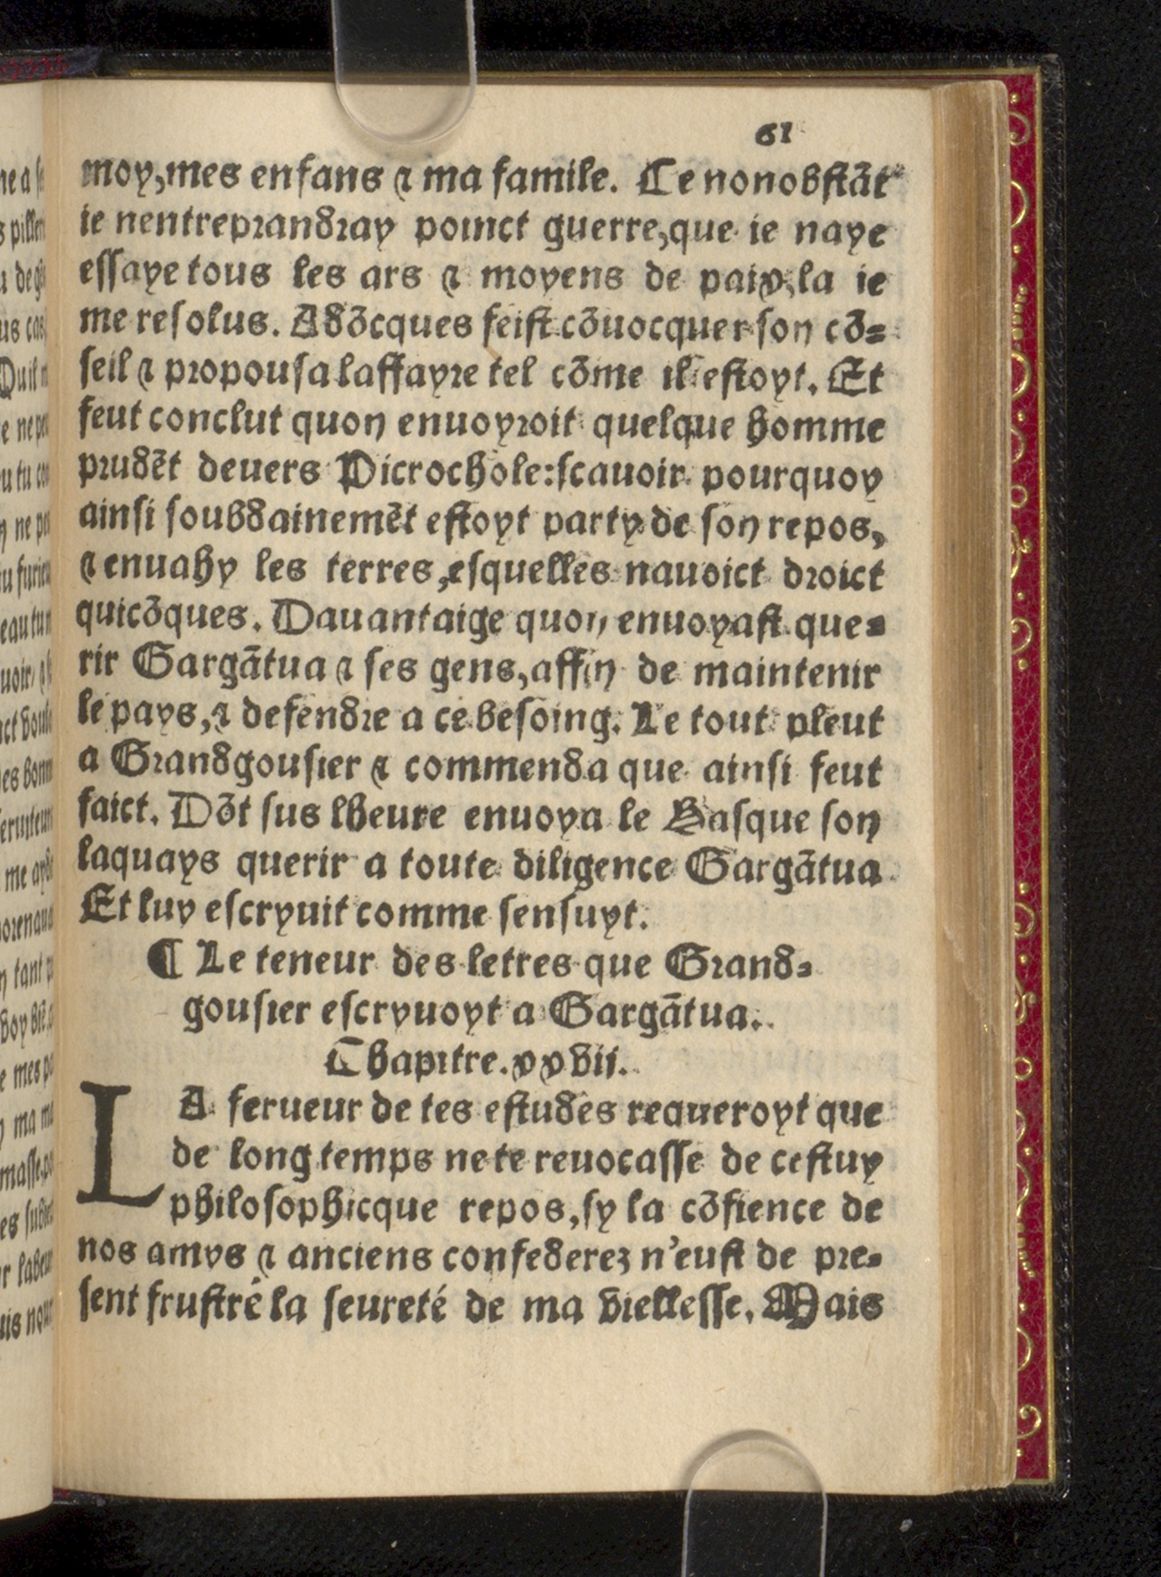 61
moy, mes enfans & ma famile. Ce nonobstāt
ie nentreprandray poinct guerre, que ie naye
essaye tous les ars & moyens de paix, la ie
me resolus. Adōcques feist cōuocquer son cō=
seil & propousa laffayre tel cōme il estoyt. Et
feut conclut quon enuoyroit quelque homme
prudēt deuers Picrochole: scauoir pourquoy
ainsi soubdainemēt estoyt party de son repos,
& enuahy les terres, esquelles nauoict droict
quicōques. Dauantaige quon enuoyast que=
rir Gargātua & ses gens, affin de maintenir
le pays, & defendre a ce besoing. Le tout pleut
a Grandgousier & commenda que ainsi feut
faict. Dōt sus lheure enuoya le Basque son
laquays querir a toute diligence Gargātua
Et luy escryuit comme sensuyt.
¶ Le teneur des letres que Grand=
gousier escryuoyt a Gargātua.
Chapitre. xxvii.
LA ferueur de tes estudes requeroyt que
de long temps ne te reuocasse de cestuy
philosophicque repos, sy la cōfience de
nos amys & anciens confederez n'eust de pre=
sent frustré la seureté de ma viellesse. Mais